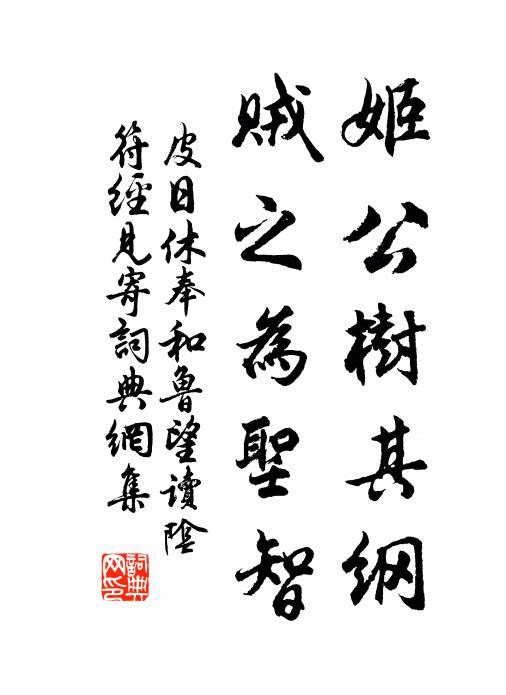 姬公樹其綱
賊之為聖智
皮日休奉和魯望讀陰
符經見寄詞典網集
詞典
网印